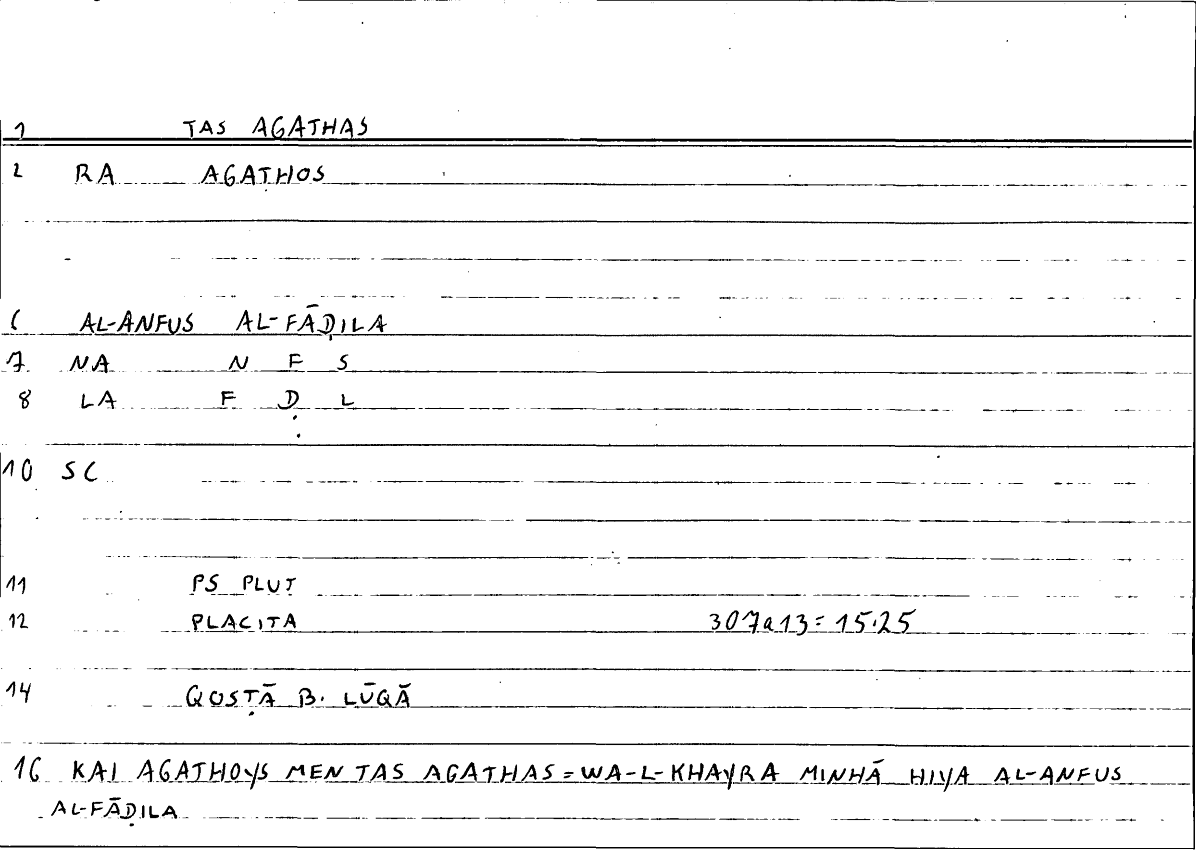 1 TAS AGATHAS
2 RA AGATHOS
6 AL-ANFUS AL-FĀḌILA
7 NA N F S
8 LA F Ḍ L
10 SC
11 PS PLUT
12 PLACITA 307a13=15.25
14 QOSṬĀ B. LŪQĀ
16 KAI AGATHOYS MEN TAS AGATHAS=WA-L-KHAYRA MINHĀ HIYA AL-ANFUS
AL-FĀḌILA